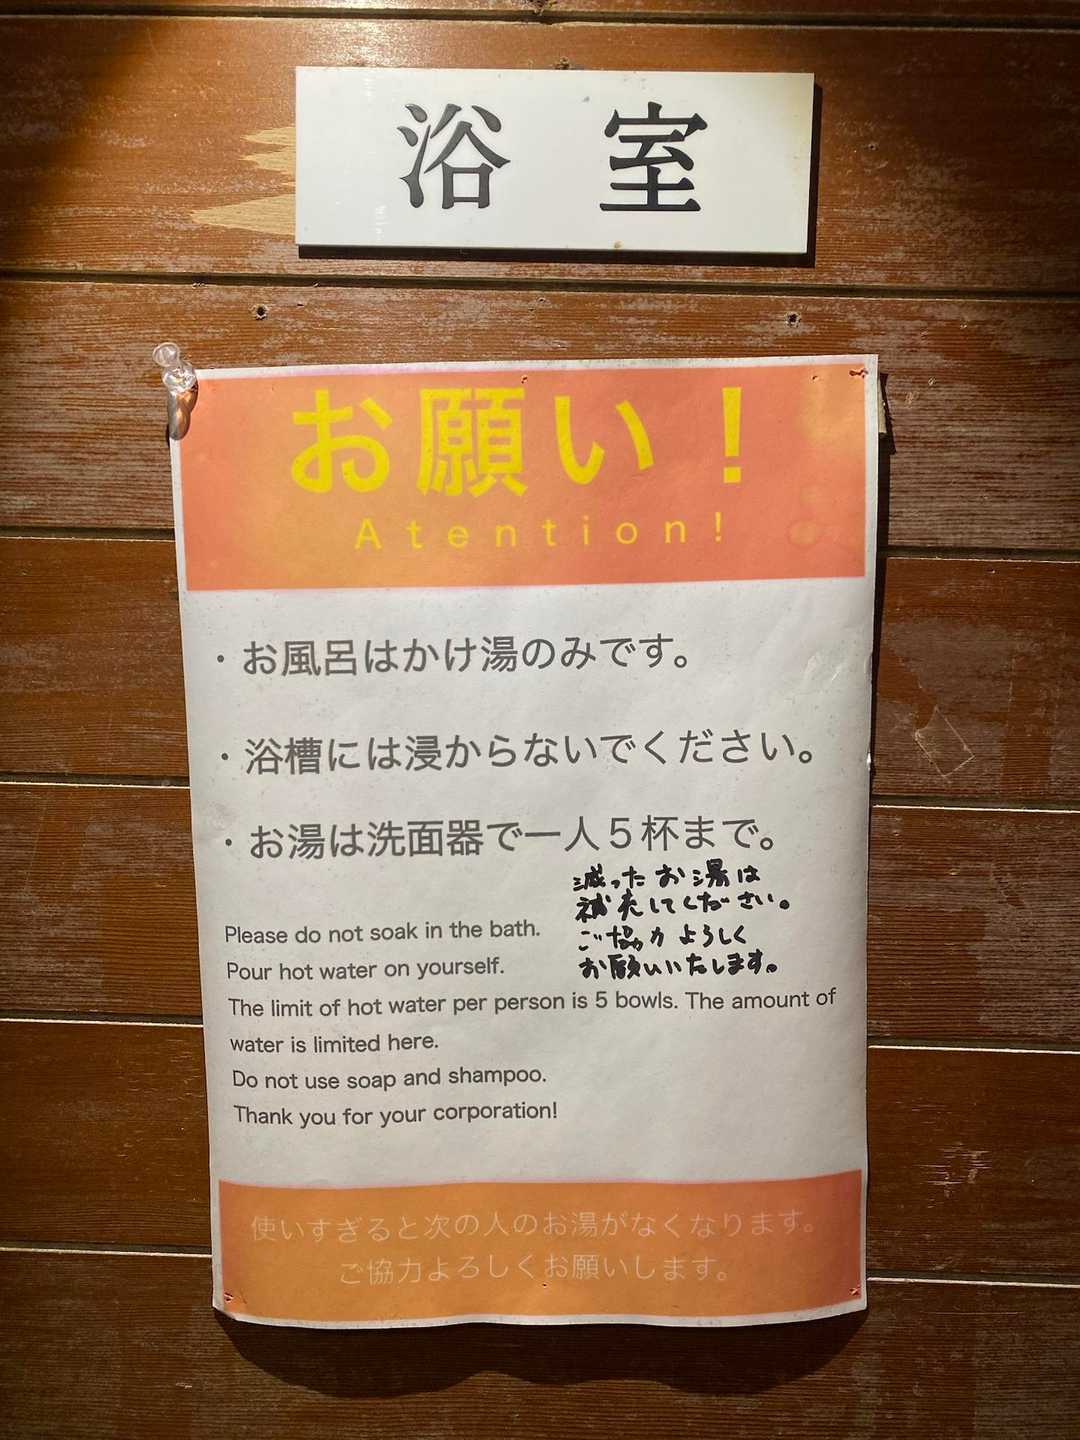 浴室
お願い！
Atention!
・お風呂はかけ湯のみです。
・浴槽には浸からないでください。
・お湯は洗面器で一人５杯まで。
減ったお湯は
補充してください。
ご協力よろしく
お願いいたします。
Please do not soak in the bath.
Pour hot water on yourself.
The limit of hot water per person is 5 bowls. The amount of
water is limited here.
Do not use soap and shampoo.
Thank you for your corporation!
使いすぎると次の人のお湯がなくなります。
ご協力よろしくお願いします。